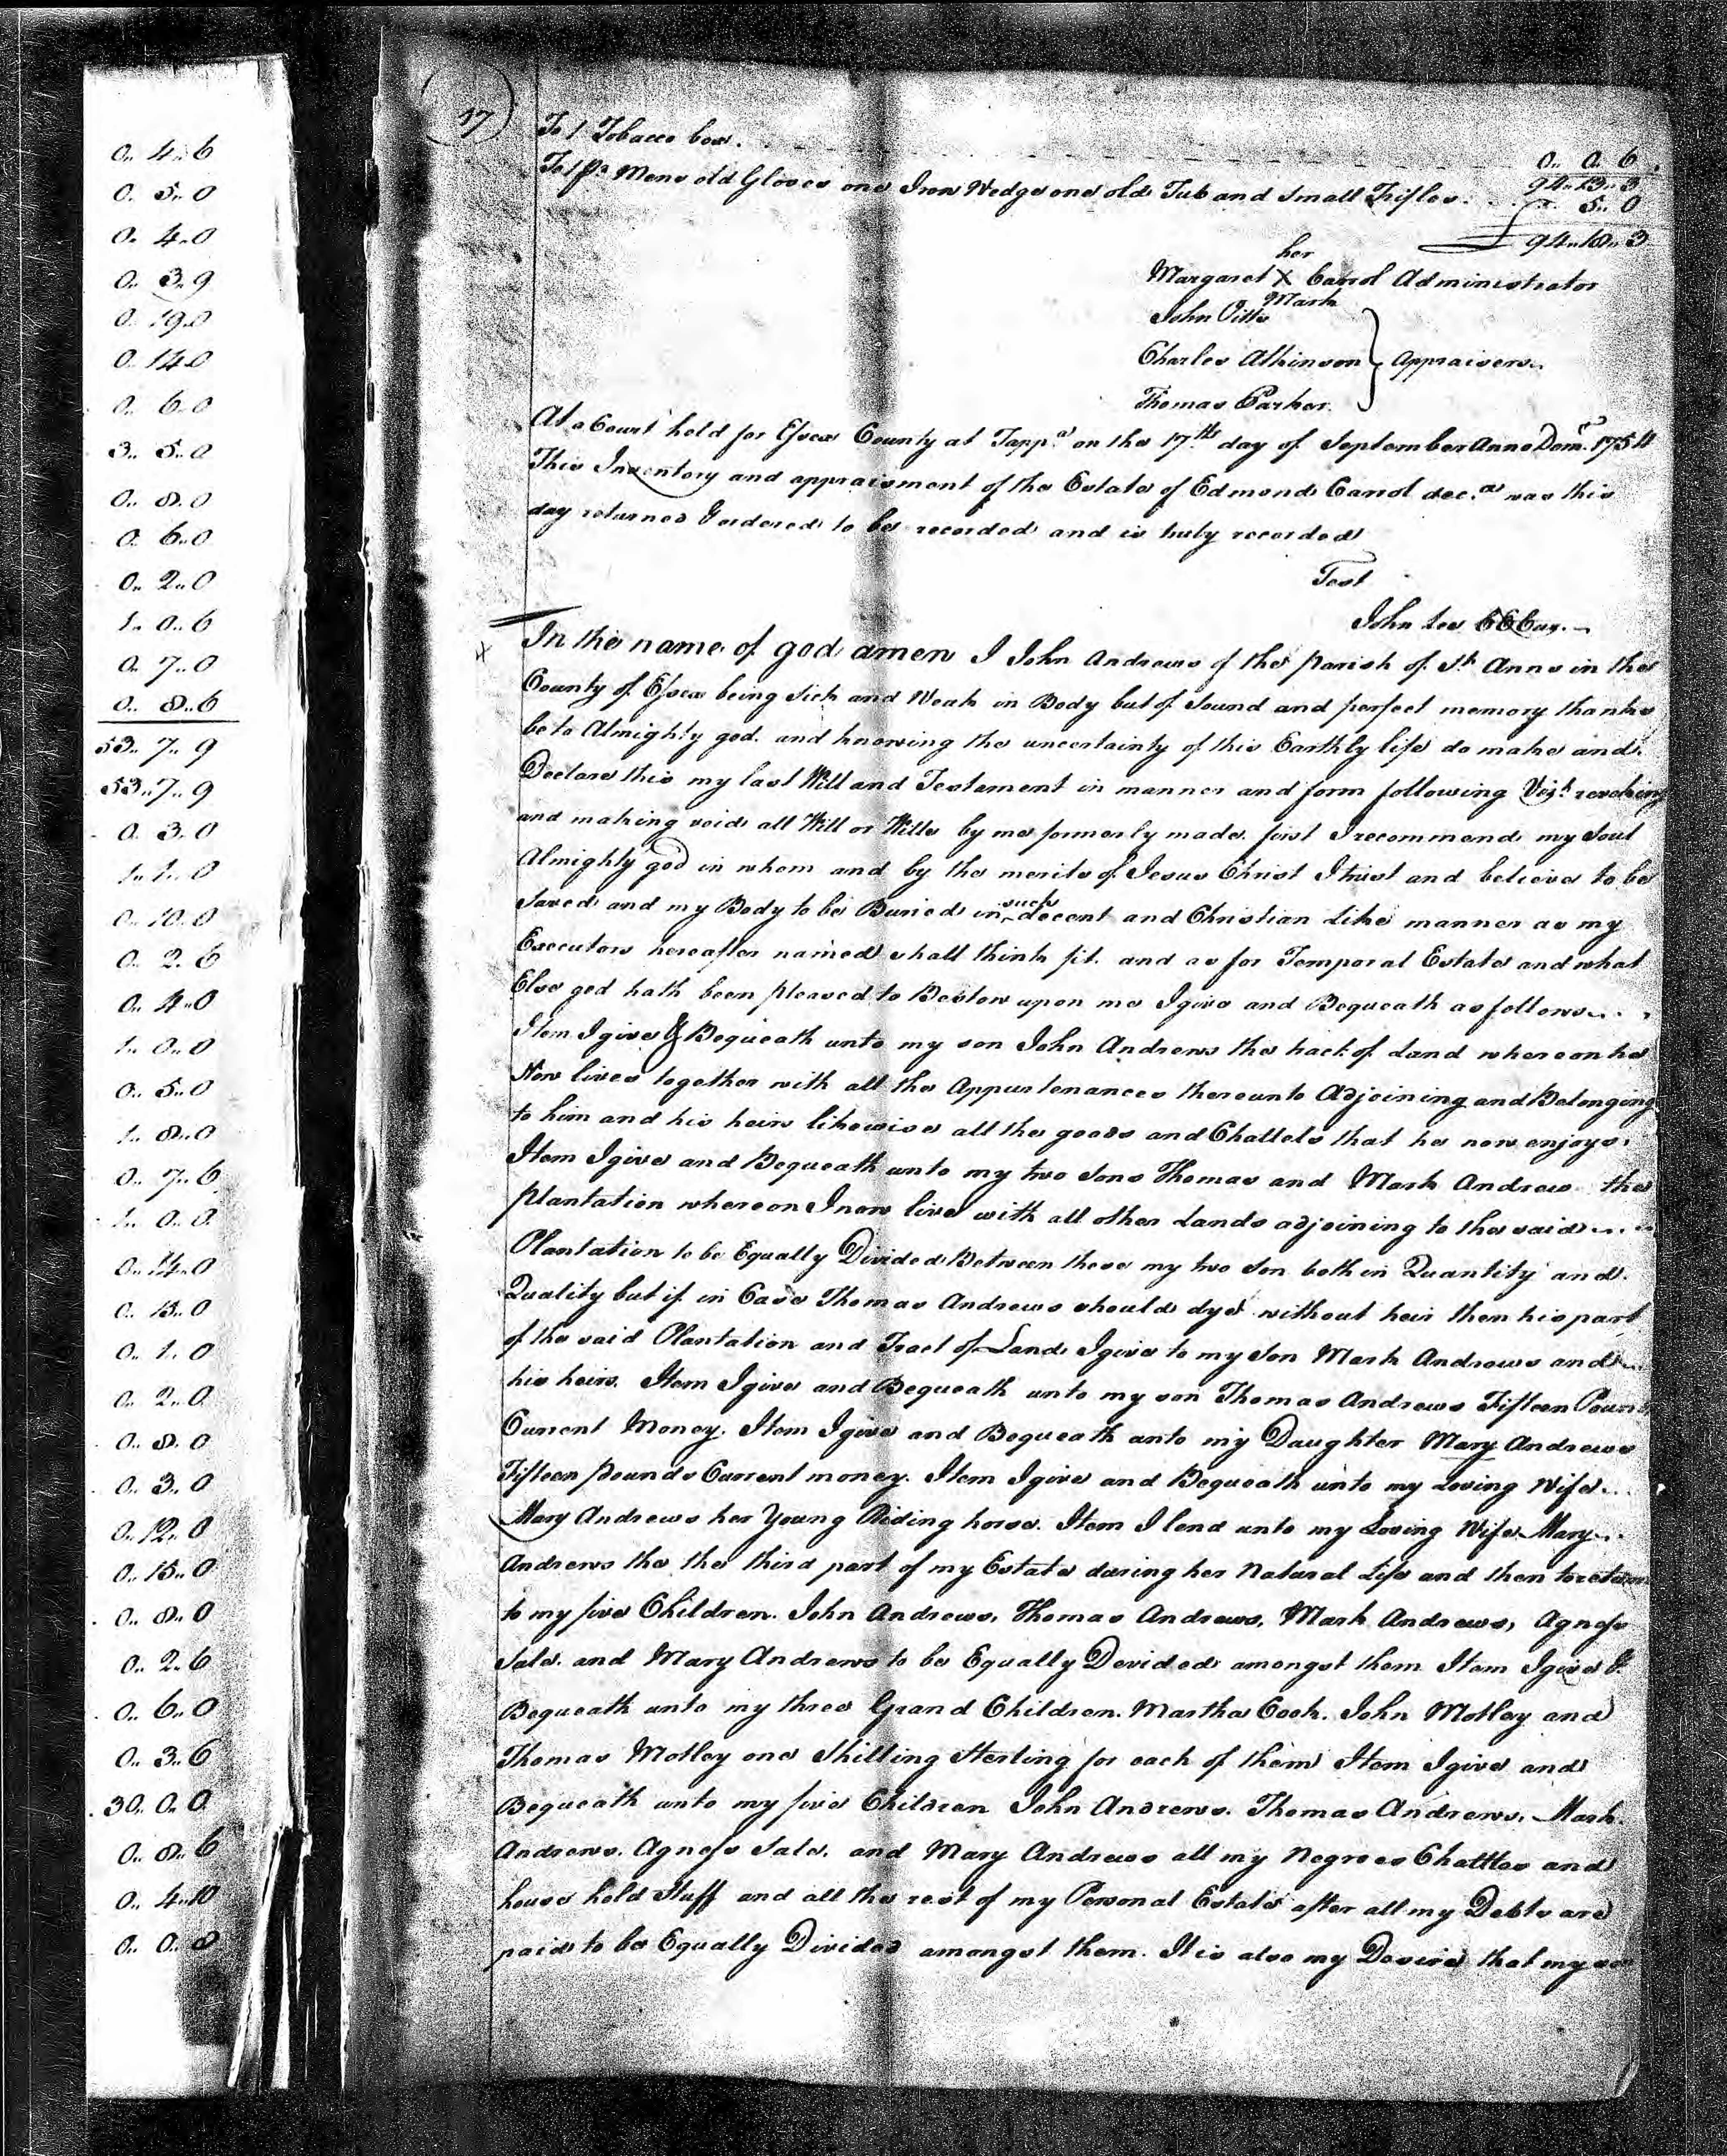 0.. 4.. 6
0. 5.. 0
0. 4.. 0
0. 3.. 9
0. 19.. 0
0. 14.. 0
0. 6.. 0
3.. 5.. 0
0.. 8.. 0
0. 6.. 0
0.. 2.. 0
1.. 0.. 6
0. 7.. 0
0.. 8.. 6
53.. 7.. 9
53.. 7.. 9
0. 3.. 0
1.. 1.. 0
0. 10.. 0
0. 2.. 6
0.. 4.. 0
1.. 0.. 0
0.. 5.. 0
1.. 8.. 0
0.. 7.. 6
1.. 0.. 0
0.. 14.. 0
0. 15.. 0
0.. 1.. 0
0.. 2.. 0
0.. 8.. 0
0.. 3.. 0
0.. 12.. 0
0.. 15.. 0
0.. 8.. 0
0.. 2.. 6
0.. 6.. 0
0.. 3.. 6
30.. 0.. 0
0.. 8.. 6
0.. 4.. 10
0.. 0.. 8
17
To 1 Tobacco box. 0.. 0. 6
94.. 13.. 3
To 1 pr. Mens old Gloves one Iron Wedge one old Tub and Small Trifles. 5.. 0
94.. 18.. 3
her
Margaret X Carrol Administrator
Mark
John Pitts
Charles Atkinson } Appraisers..
Thomas Parker.
At a Court held for Essex County at Tappa. on the 17th. day of September Anno Dom. 1754
This Inventory and appraisment of the Estate of Edmond Carrol decd. was this
day returned & ordered to be recorded and is truly recorded
Test
John Lee CCCur.
X In the name of god amen I John Andrews of the parish of St. Anns in the
County of Essex being Sick and Weak in Body but of Sound and perfect memory thanks
be to Almighty god. and knowing the uncertainty of this Earthly life do make and
Declare this my last Will and Testament in manner and form following Vizt. revoking
and making void all Will or Wills by me formerly made. first I recommend my Soul
Almighty god in whom and by the merits of Jesus Christ I trust and believe to be
Saved and my Body to be Buried in such decent and Christian Like manner as my
Executors hereafter named shall think fit. and as for Temporal Estate and what
Else god hath been pleased to Bestow upon me I give and Bequeath as follows...
Item I give & Bequeath unto my son John Andrews the track of Land whereon he
Now lives together with all the Appurtenances thereunto Adjoining and Belonging
to him and his heirs likewise all the goods and Chattels that he now enjoys.
Item I give and Bequeath unto my two Sons Thomas and Mark Andrews the
plantation whereon I now live with all other Lands adjoining to the said...
Plantation to be Equally Divided Between these my two Son both in Quantity and
Quality but if in Case Thomas Andrews should dye without heir then his part
of the said Plantation and Tract of Land I give to my Son Mark Andrews and
his heirs. Item I give and Bequeath unto my son Thomas Andrews Fifteen Pounds
Current Money. Item I give and Bequeath unto my Daughter Mary Andrews
Fifteen pounds Current money. Item I give and Bequeath unto my Loving Wife...
Mary Andrews her Young Riding horse. Item I lend unto my Loving Wife Mary...
Andrews the the third part of my Estate during her Natural Life and then to return
to my five Children. John Andrews, Thomas Andrews, Mark Andrews, Agness
Sale. and Mary Andrews to be Equally Devided amongst them Item I give &
Bequeath unto my three Grand Children. Martha Cook. John Motley and
Thomas Motley one Shilling Sterling for each of them Item I give and
Bequeath unto my five Children John Andrews. Thomas Andrews. Mark.
Andrews. Agness Sale. and Mary Andrews all my Negroes Chattles and
house hold Stuff and all the rest of my Personal Estate after all my Debts are
paid to be Equally Divided amongst them. It is also my Desire that my